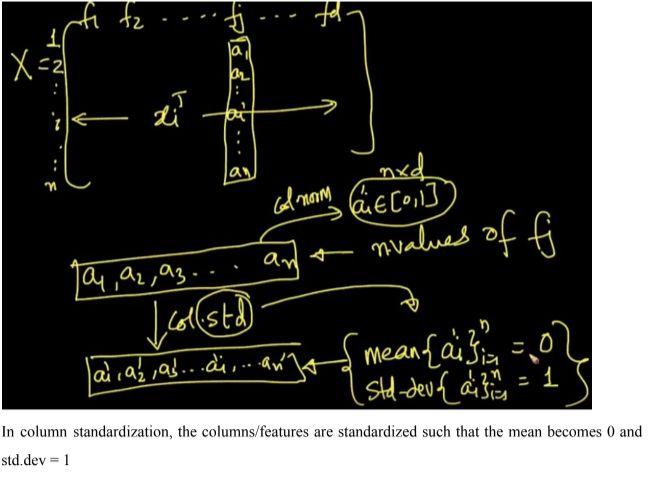 f1 f2 ..... fj ... fd
1
X = 2
:
i ← xiᵀ → 
:
n
a1
a2
:
ai
:
an
n×d
col norm
ai' ∈ [0,1]
a1, a2, a3 ... an ← n values of fj
col. std
a1', a2', a3' ... ai', ... an'
mean{ai'}ⁿi=1 = 0
std-dev{ai'}ⁿi=1 = 1
In column standardization, the columns/features are standardized such that the mean becomes 0 and
std.dev = 1